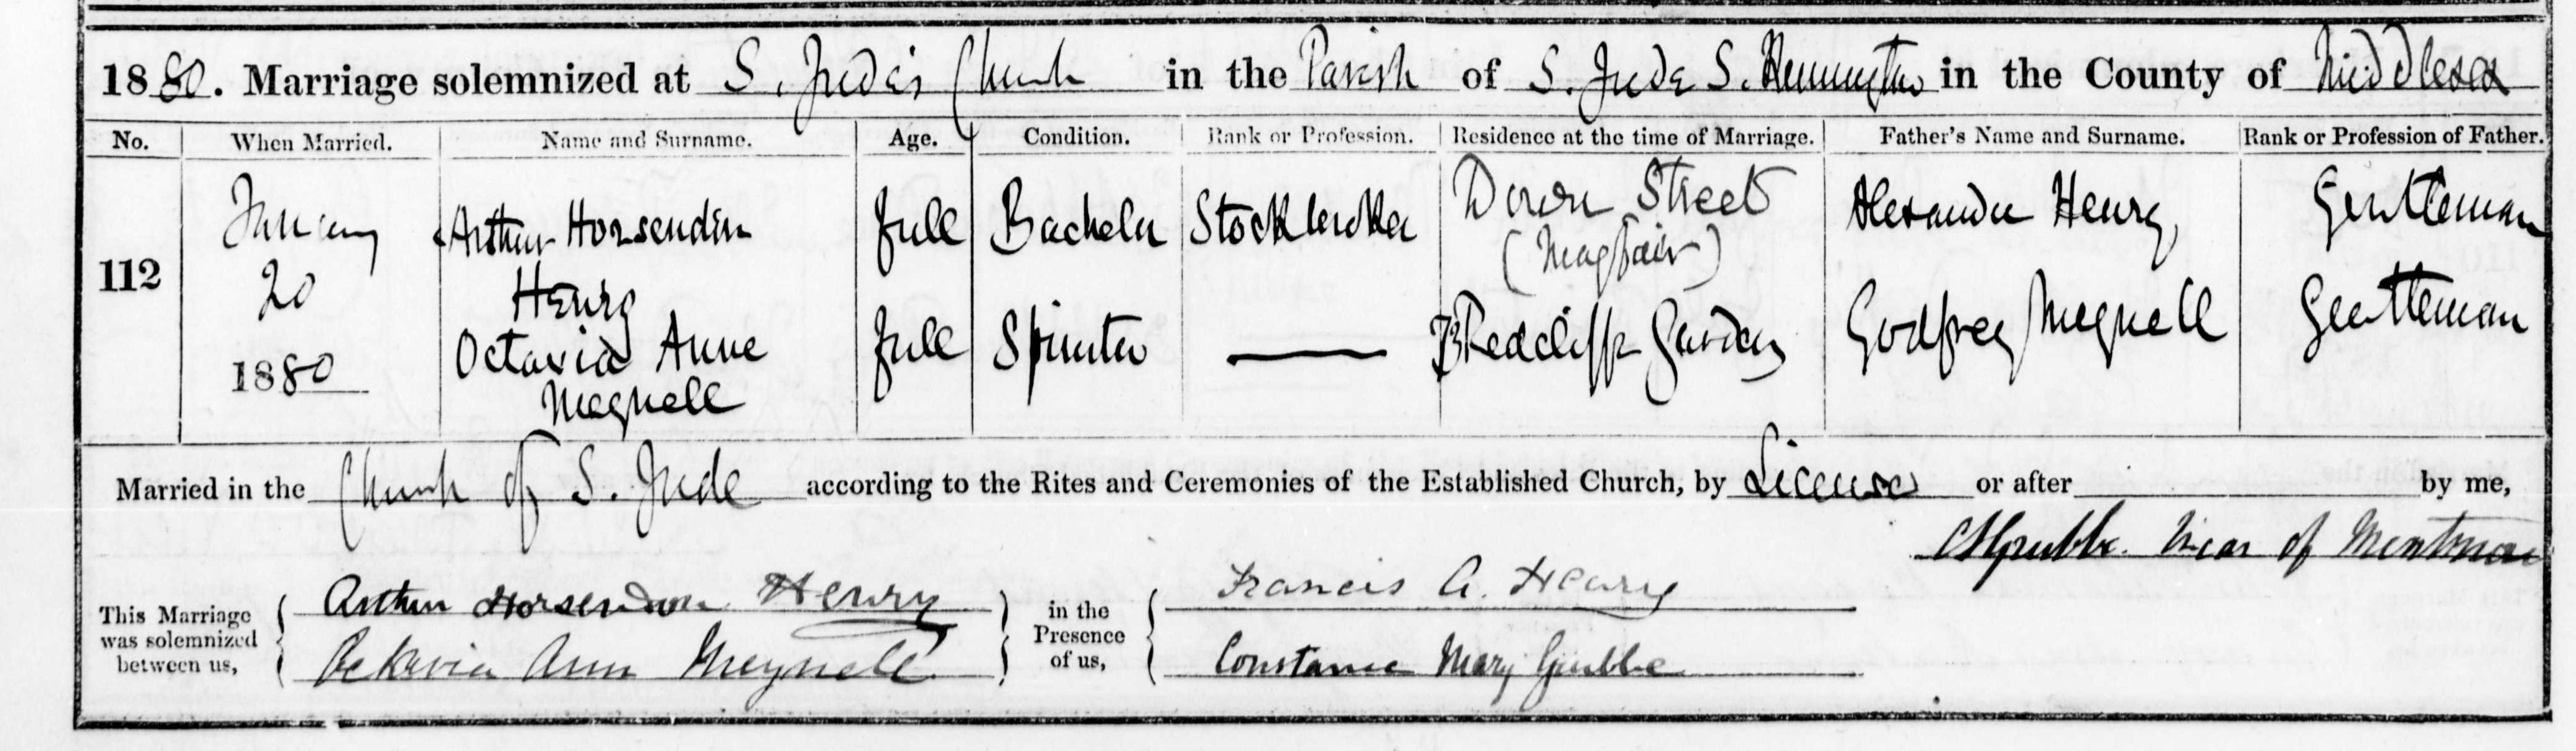 1880. Marriage solemnized at S. Jude's Church in the Parish of S. Jude S. Kensington in the County of Middlesex
No. When Married. Name and Surname. Age. Condition. Rank or Profession. Residence at the time of Marriage. Father's Name and Surname. Rank or Profession of Father.
112 January 20 1880 Arthur Horsendin Henry full Bachelor Stockbroker Down Street (Mayfair) Alexander Henry Gentleman
Octavia Anne Meynell full Spinster — Redcliffe Gardens Godfrey Meynell Gentleman
Married in the Church of S. Jude according to the Rites and Ceremonies of the Established Church, by License or after by me,
Vicar of Mentmore
This Marriage was solemnized between us, Arthur Horsendon Henry in the Presence of us, Francis A. Henry
Octavia Ann Meynell Constance Mary Grubbe